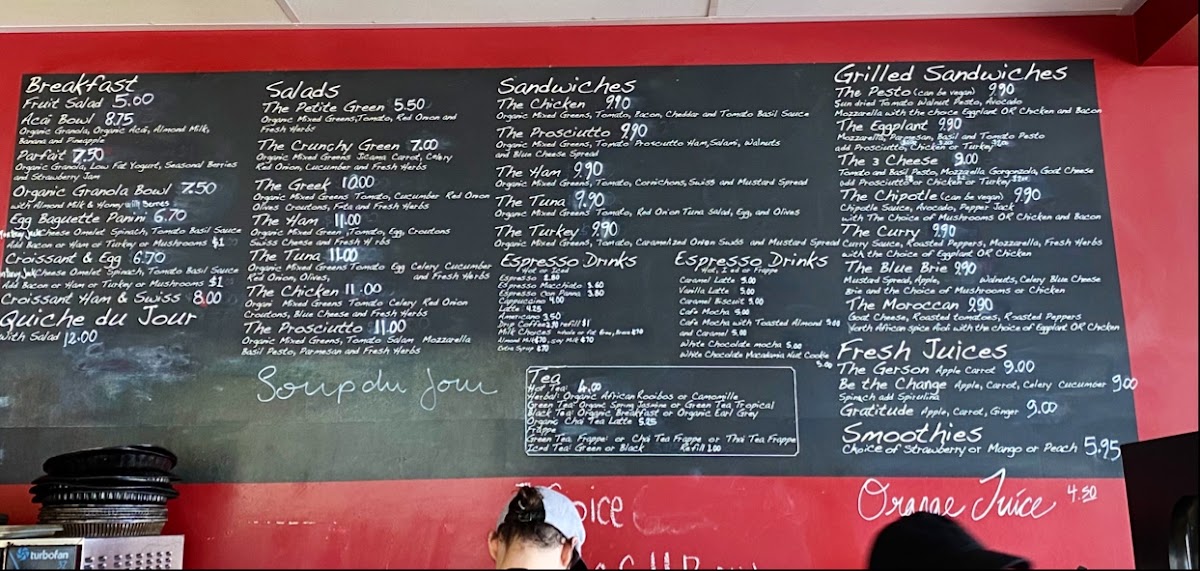 Breakfast
Fruit Salad 5.00
Acai Bowl 8.75
Organic Granola, Organic Acai, Almond Milk,
Banana and Pineapple
Parfait 7.50
Organic Granola, Low Fat Yogurt, Seasonal Berries
and Strawberry Jam
Organic Granola Bowl 7.50
with Almond Milk & Honey with Berries
Egg Baguette Panini 6.70
Cheese Omelet Spinach, Tomato Basil Sauce
Add Bacon or Ham or Turkey or Mushrooms $1
Croissant & Egg 6.70
Cheese Omelet Spinach, Tomato Basil Sauce
Add Bacon or Ham or Turkey or Mushrooms $1
Croissant Ham & Swiss 8.00
Quiche du Jour
with Salad 12.00
Salads
The Petite Green 5.50
Organic Mixed Greens, Tomato, Red Onion and
Fresh Herbs
The Crunchy Green 7.00
Organic Mixed Greens Jicama Carrot, Celery
Red Onion, Cucumber and Fresh Herbs
The Greek 10.00
Organic Mixed Greens Tomato, Cucumber Red Onion
Olives Croutons, Feta and Fresh Herbs
The Ham 11.00
Organic Mixed Green, Tomato, Egg, Croutons
Swiss Cheese and Fresh H rbs
The Tuna 11.00
Organic Mixed Greens Tomato Egg Celery Cucumber
Red Onion, Olives, and Fresh Herbs
The Chicken 11.00
Organ Mixed Greens Tomato Celery Red Onion
Croutons, Blue Cheese and Fresh Herbs
The Prosciutto 11.00
Organic Mixed Greens, Tomato Salam Mozzarella
Basil Pesto, Parmesan and Fresh Herbs
Soup du Jour
Sandwiches
The Chicken 9.90
Organic Mixed Greens, Tomato, Bacon, Cheddar and Tomato Basil Sauce
The Prosciutto 9.90
Organic Mixed Greens, Tomato Prosciutto Ham, Salami, Walnuts
and Blue Cheese Spread
The Ham 9.90
Organic Mixed Greens, Tomato, Cornichons, Swiss and Mustard Spread
The Tuna 9.90
Organic Mixed Greens Tomato, Red Onion Tuna Salad, Egg, and Olives
The Turkey 9.90
Organic Mixed Greens, Tomato, Caramelized Onion Swiss and Mustard Spread
Espresso Drinks
Hot or Iced
Espresso 2.80
Espresso Macchiato 3.60
Espresso Con Panna 3.80
Cappuccino 4.00
Latte 4.25
Americano 3.50
Drip Coffee Refill $1
Milk Choices
Almond Milk $.70, Soy Milk $.70
Extra Syrup $.70
Espresso Drinks
Hot, Iced or Frappe
Caramel Latte 5.00
Vanilla Latte 5.00
Caramel Biscuit 5.00
Cafe Mocha 5.00
Cafe Mocha with Toasted Almond 5.00
and Caramel 5.00
White Chocolate mocha 5.00
White Chocolate Macadamia Nut Cookie
5.00
Tea
Hot Tea: 4.00
Herbal: Organic African Rooibos or Camomille
Green Tea: Organic Spring Jasmine or Green Tea Tropical
Black Tea: Organic Breakfast or Organic Earl Grey
Organic Chai Tea Latte 5.25
Frappe
Green Tea Frappe or Chai Tea Frappe or Thai Tea Frappe
Iced Tea: Green or Black Refill 1.00
Grilled Sandwiches
The Pesto (can be vegan) 9.90
Sun dried Tomato Walnut Pesto, Avocado
Mozzarella with the choice Eggplant OR Chicken and Bacon
The Eggplant 9.90
Mozzarella, Parmesan, Basil and Tomato Pesto
add Prosciutto, Chicken or Turkey
The 3 Cheese 9.00
Tomato and Basil Pesto, Mozzarella Gorgonzola, Goat Cheese
add Prosciutto or Chicken or Turkey
The Chipotle (can be vegan) 9.90
Chipotle Sauce, Avocado, Pepper Jack
with The Choice of Mushrooms OR Chicken and Bacon
The Curry 9.90
Curry Sauce, Roasted Peppers, Mozzarella, Fresh Herbs
with the Choice of Eggplant OR Chicken
The Blue Brie 9.90
Mustard Spread, Apple, Walnuts, Celery Blue Cheese
Brie and the Choice of Mushrooms or Chicken
The Moroccan 9.90
Goat Cheese, Roasted tomatoes, Roasted Peppers
North African spice Aioli with the choice of Eggplant OR Chicken
Fresh Juices
The Gerson Apple Carrot 9.00
Be the Change Apple, Carrot, Celery Cucumber 9.00
Spinach add Spirulina
Gratitude Apple, Carrot, Ginger 9.00
Smoothies
Choice of Strawberry or Mango or Peach 5.95
Orange Juice 4.50
turbofan